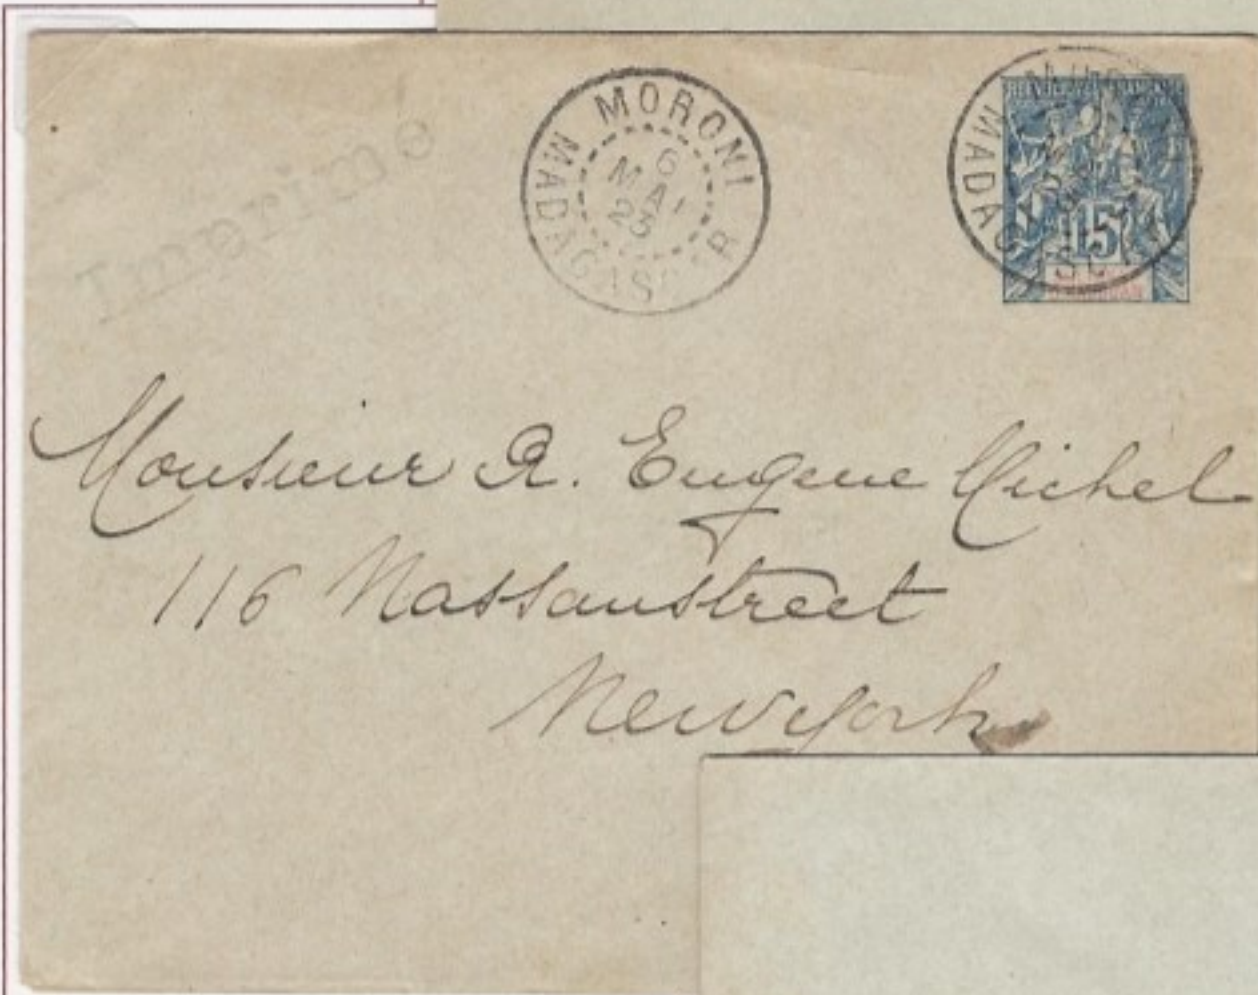 Imprime
MORONI
6
MAI
23
MADAGASCAR
MADAGASCAR
15
Monsieur R. Eugene Michel
116 Nassaustreet
Newyork